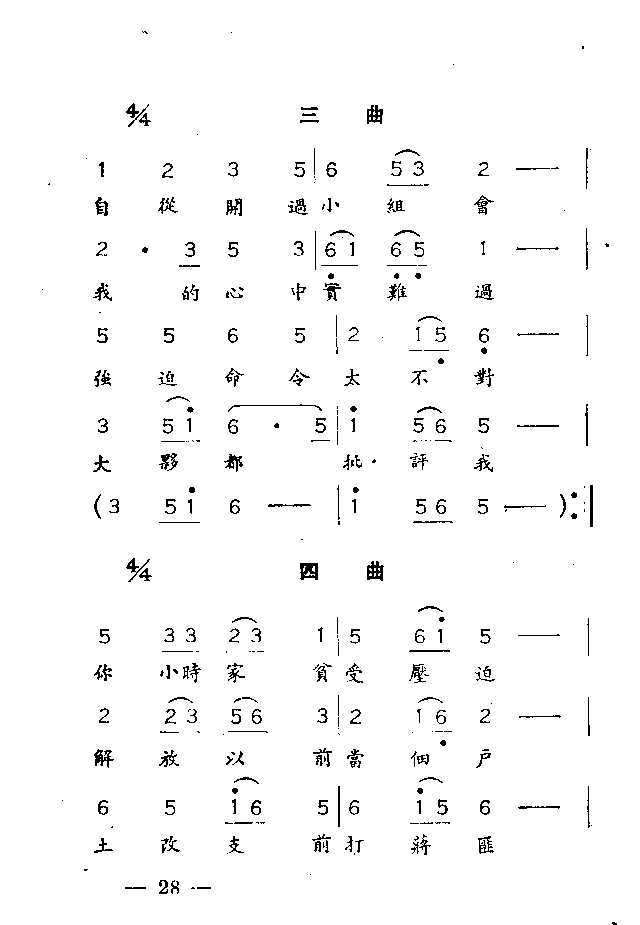 4/4 三曲
1 2 3 5 | 6 5 3 2 — |
自從開過小組會
2 · 3 5 3 | 6̣ 1 6̣ 5̣ 1 — |
我的心中實難過
5 5 6 5 | 2 1 5̣ 6̣ — |
強迫命令太不對
3 5 1̇ 6 · 5 | 1̇ 5 6 5 — |
大夥都批評我
(3 5 1̇ 6 — | 1̇ 5 6 5 — ) :|
4/4 四曲
5 3 3 2 3 1 | 5 6 1̇ 5 — |
你小時家貧受壓迫
2 2 3 5 6 3 | 2 1 6̣ 2 — |
解放以前當佃户
6 5 1̇ 6 5 | 6 1̇ 5 6 — |
土改支前打蔣匪
— 28 —